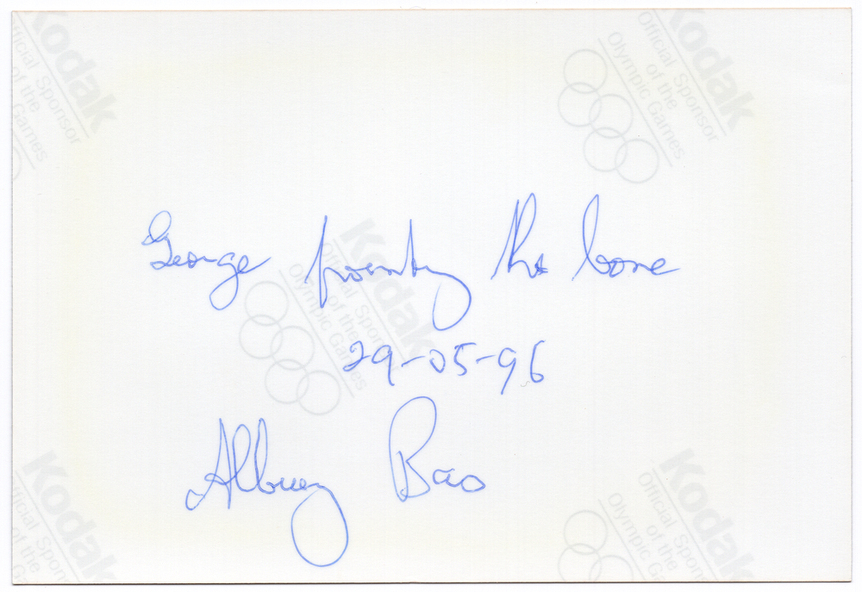 Kodak
Sponsor
of the
Games
Kodak
Official Sponsor
of the
Olympic Games
George the bone
Kodak
Official Sponsor
of the
Olympic Games
29-05-96
Albury Bao
Kodak
Official Spon
of the
Olympic
Kodak
Official Sponsor
of the
Olympic Games